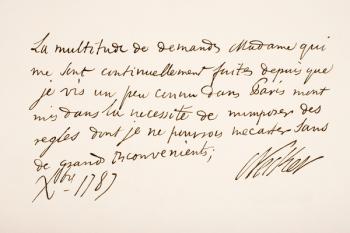 La multitude de demandes Madame qui
me sont continuellement faites depuis que
je vis un peu connu dans Paris mont
mis dans la necessité de mimposer des
regles dont je ne pourrois mecarter sans
de grands inconvenients;
Xbre 1787